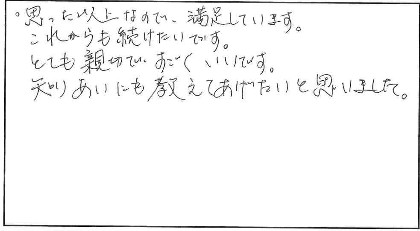 ・思った以上なので、満足しています。
これからも続けたいです。
とても親切で、すごくいいです。
知りあいにも教えてあげたいと思いました。